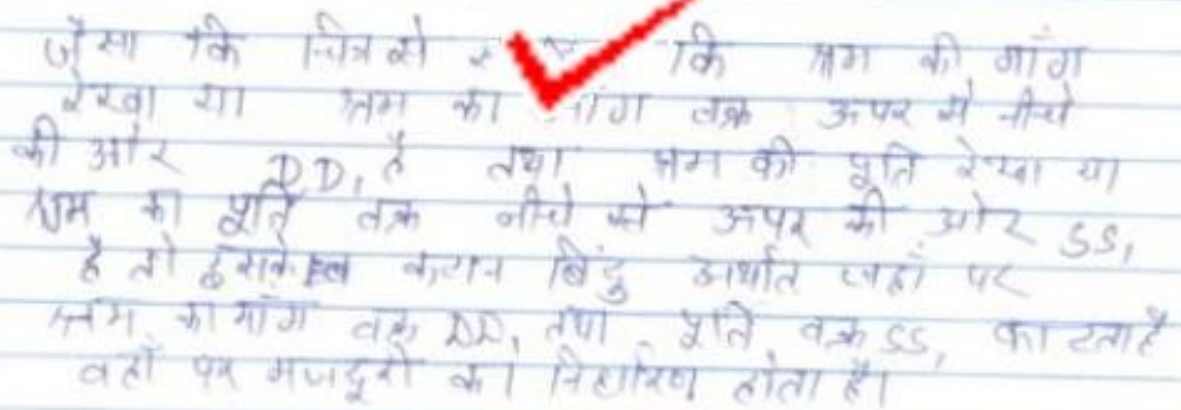 जैसा कि चित्र से कि श्रम की मांग
रेखा या श्रम का मांग वक्र ऊपर से नीचे
की ओर DD₁ है तथा श्रम की पूर्ति रेखा या
श्रम का पूर्ति वक्र नीचे से ऊपर की ओर SS₁
है तो इसके कटान बिंदु अर्थात जहाँ पर
श्रम का मांग वक्र DD₁ तथा पूर्ति वक्र SS₁ काटता है
वहाँ पर मजदूरी का निर्धारण होता है।